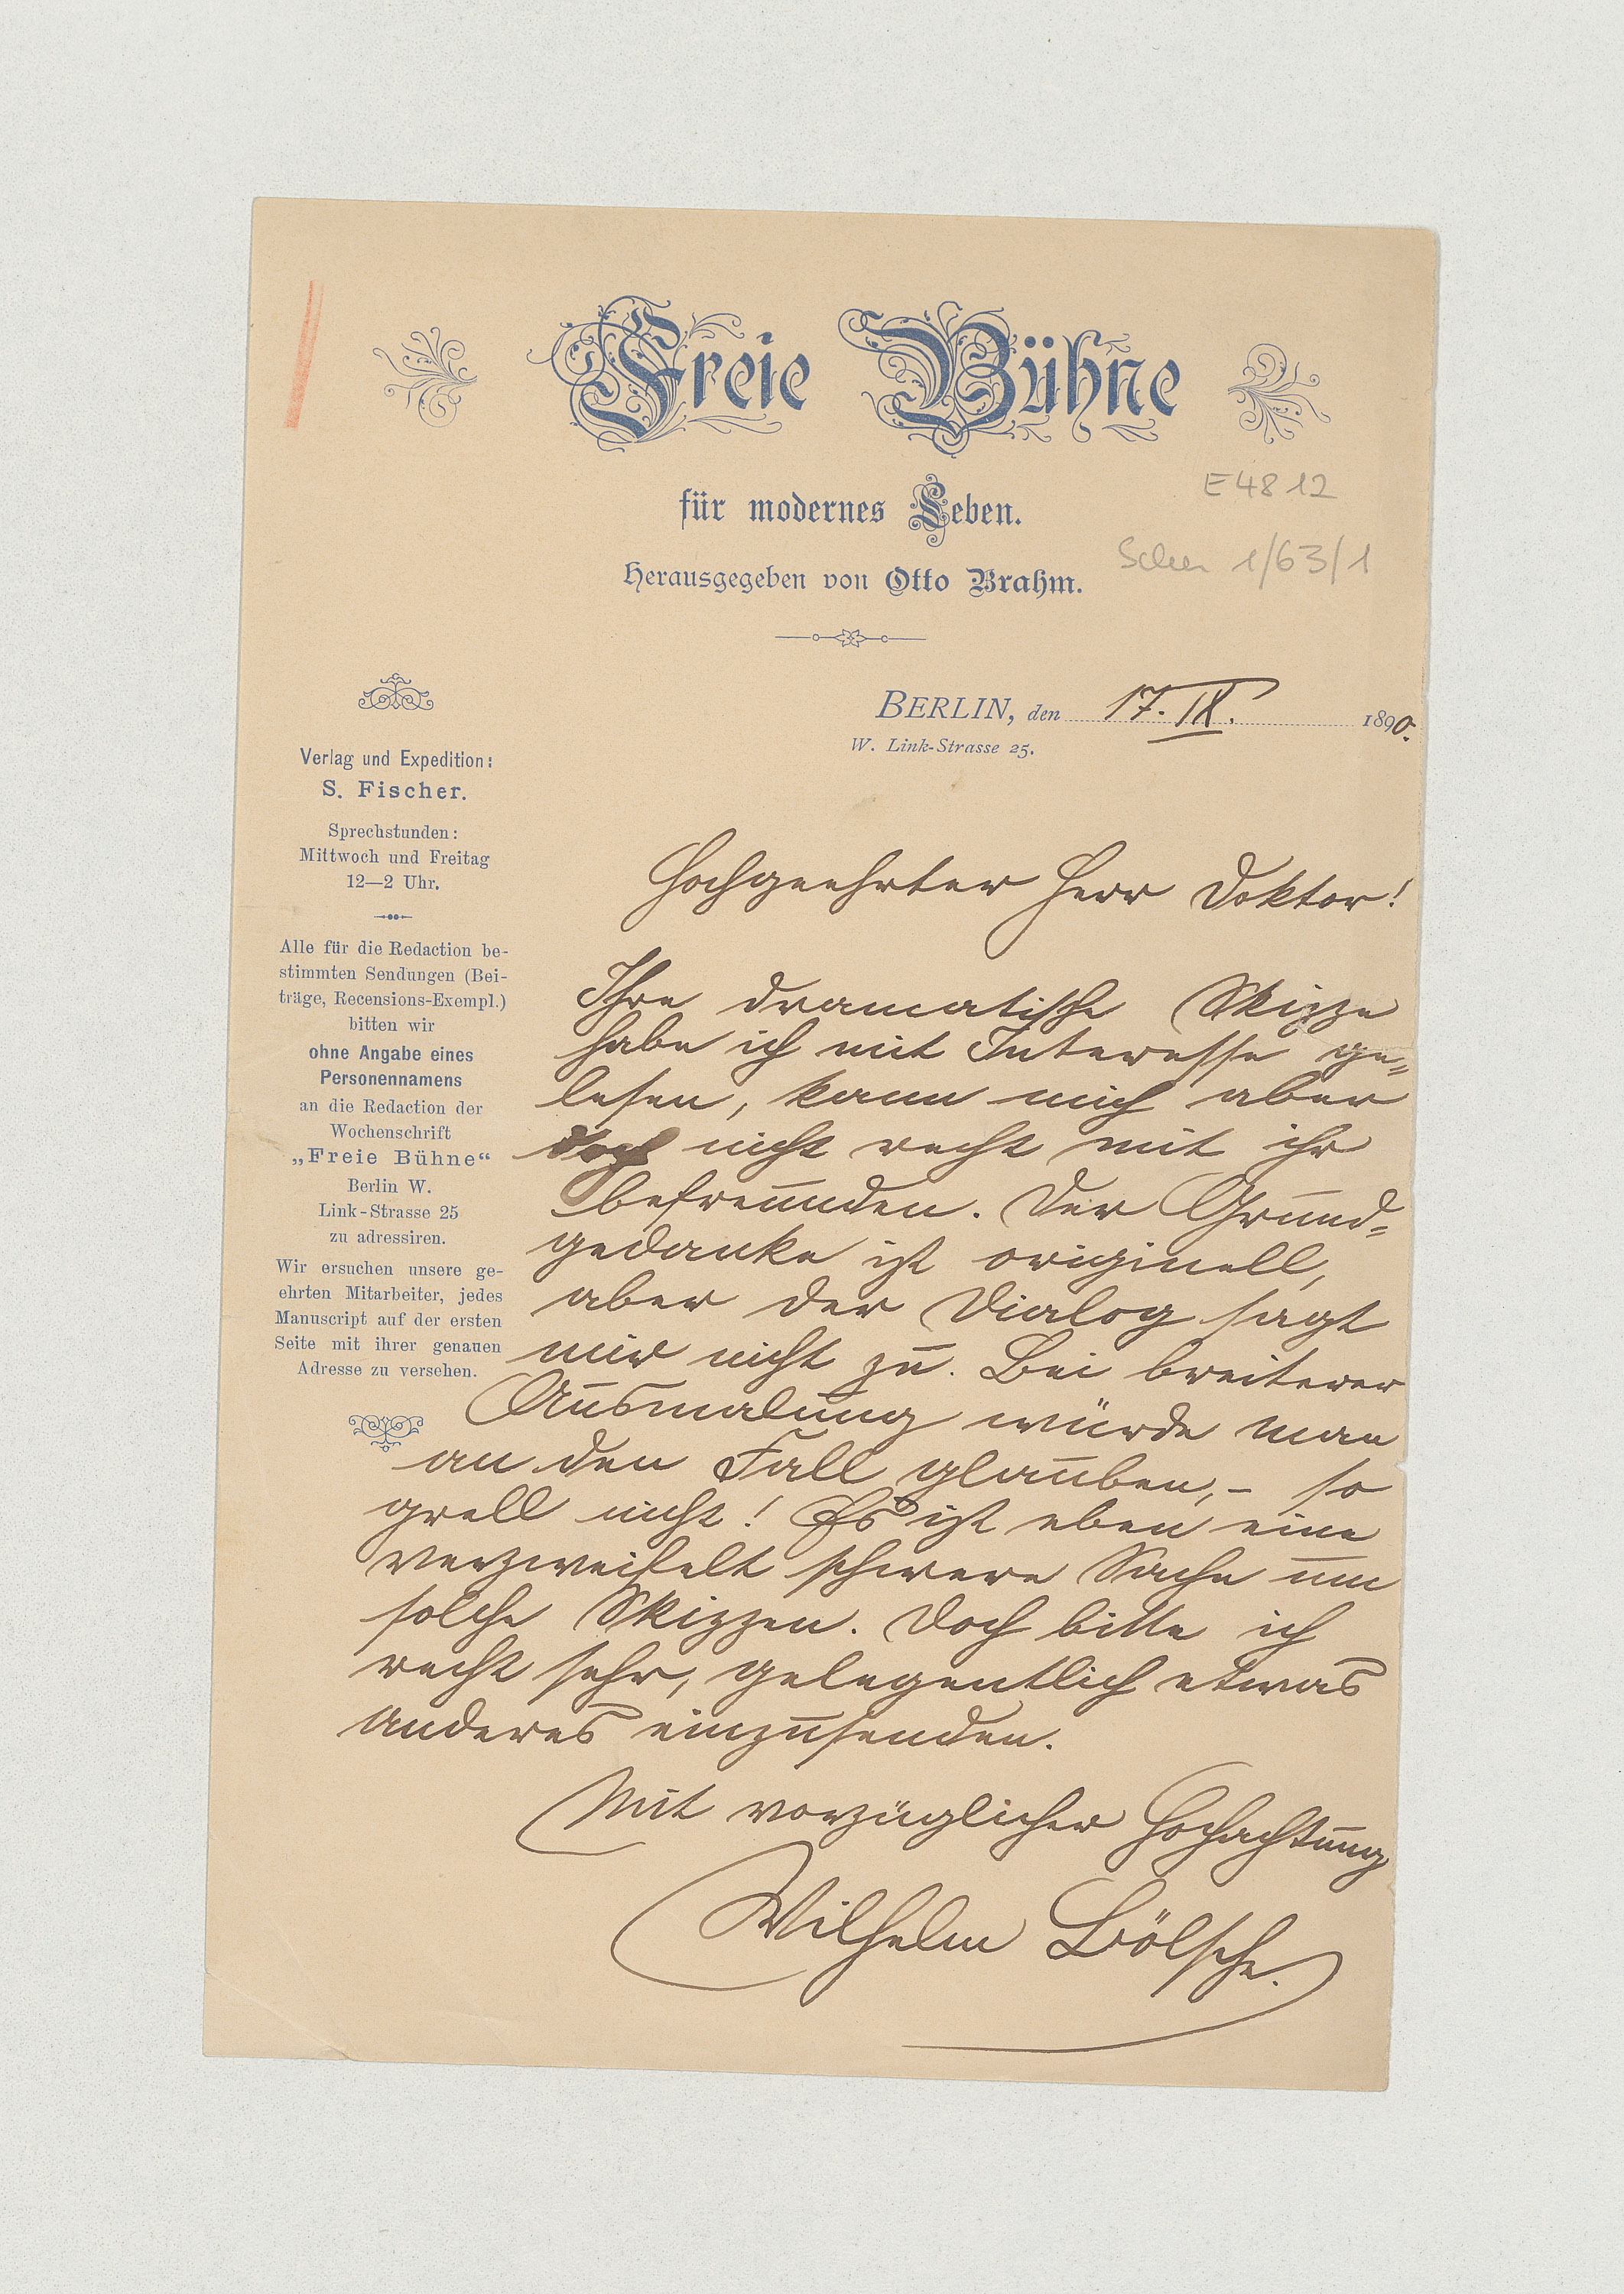 Freie Bühne
für modernes Leben.
Herausgegeben von Otto Brahm.
E 4812
1/63/1
BERLIN, den 17. IX. 1890.
W. Link-Strasse 25.
Verlag und Expedition:
S. Fischer.
Sprechstunden:
Mittwoch und Freitag
12—2 Uhr.
Alle für die Redaction be-
stimmten Sendungen (Bei-
träge, Recensions-Exempl.)
bitten wir
ohne Angabe eines
Personennamens
an die Redaction der
Wochenschrift
„Freie Bühne“
Berlin W.
Link-Strasse 25
zu adressiren.
Wir ersuchen unsere ge-
ehrten Mitarbeiter, jedes
Manuscript auf der ersten
Seite mit ihrer genauen
Adresse zu versehen.
Hochgeehrter Herr Doktor!
Ihre dramatische Skizze
habe ich mit Interesse ge=
lesen, kann mich aber
doch nicht recht mit ihr
befreunden. Der Grund=
gedanke ist originell,
aber der Dialog sagt
mir nicht zu. Bei breiterer
Ausmalung würde man
an den Fall glauben, – so
grell nicht! Es ist eben eine
verzweifelt schwere Sache um
solche Skizzen. Doch bitte ich
recht sehr, gelegentlich etwas
anderes einzusenden.
Mit vorzüglicher Hochachtung
Wilhelm Bölsche.